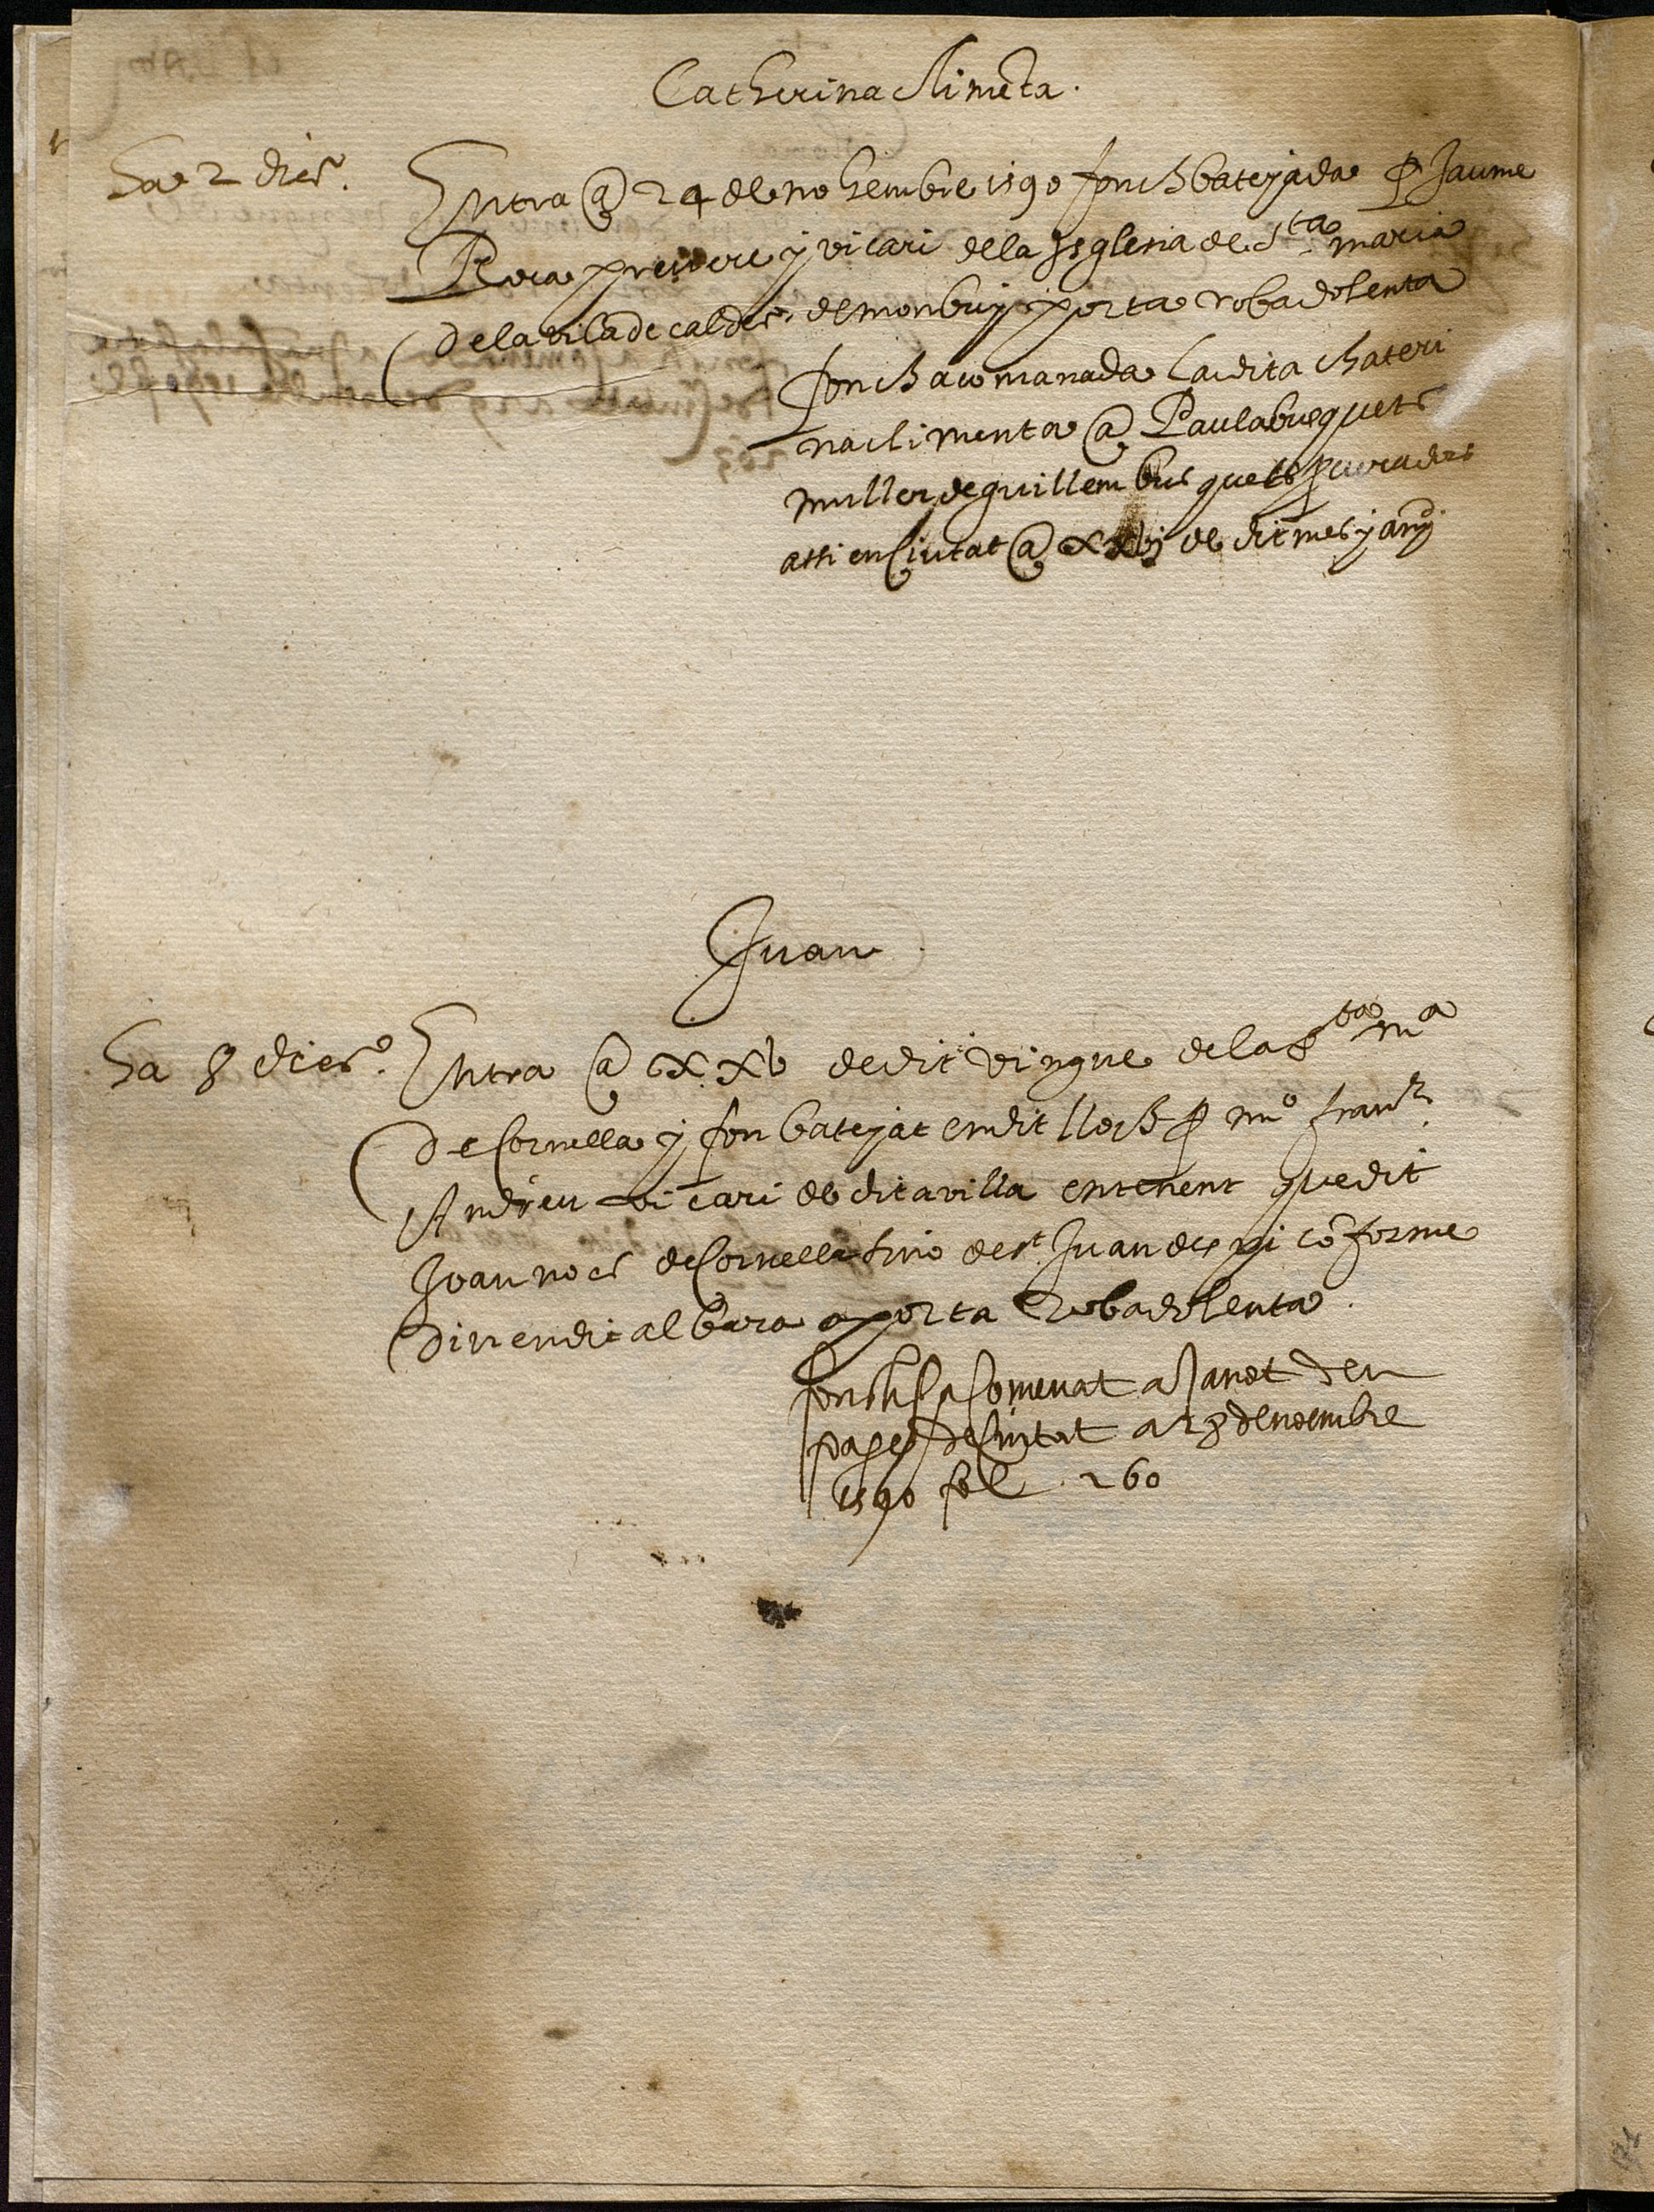 Catherina Climēta.
ha 2 dies.
Entra @ 24 de nohembre 1590 fonch batejada p Jaume
Roca prevere y vicari de la Isglesia de Sta. maria
de la vila de caldes de monbuy porta roba dolenta
fonch acomanada la dita Chateri
na climenta @ Paula busquets
muller de guillem busquets
assi en Ciutat @ xxvj de dit mes y any
Juan
ha 8 dies.
Entra @ xxv de dit vingue de la sta ma
de Cornella y fon batejat en dit lloch p mo franch
Andreu vicari de dita villa entenent que dit
Joan no es de Cornella sino de st Juan des pi cōforme
diu en dit albara aporta Roba dolenta.
fonch Acomenat a Janot den
pages de Ciutat a 28 de noembre
1590 fol 260